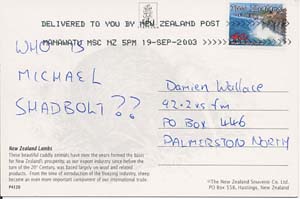 DELIVERED TO YOU BY NEW ZEALAND POST
MANAWATU MSC NZ 5PM 19-SEP-2003
WHO IS
MICHAEL
SHADBOLT??
Damien Wallace
92.2vs fm
PO BOX 446
PALMERSTON NORTH
New Zealand Lambs
These beautiful cuddly animals have over the years formed the basis
for New Zealand's prosperity, as our major industry since before the
turn of the 20th Century, was based largely on wool and related
products. From the time of introduction of the freezing industry, sheep
became an even more important component of our international trade.
P4120
©The New Zealand Souvenir Co. Ltd.
PO Box 558, Hastings, New Zealand